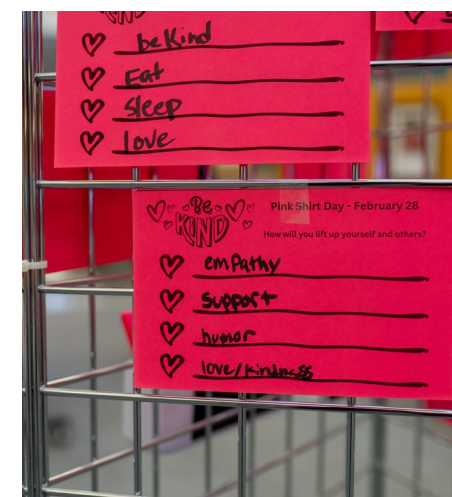 KIND
be Kind
Eat
Sleep
love
Be KIND
Pink Shirt Day - February 28
How will you lift up yourself and others?
emPathy
Support
humor
love/Kindness